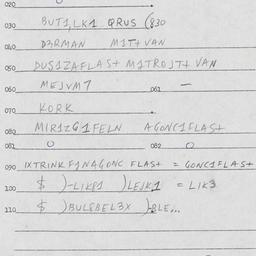 020
030 BUT1,LK1 QRUS (830
040 D3RMAN M1T+VAN
050 DUS1ZAFLAS+ M1TROJT+ VAN
060 MEJVM7 061 —
070 KORK
080 MIR1ZG1FELN AGONC1FLAS+
081 O 082 O
090 IXTRINKFJNAGONC FLAS+ = GONC1FLAS+
100 $ )-LIK81 )LEJK1 = LIK3
110 $ )BUL8BEL3X )-8LE...